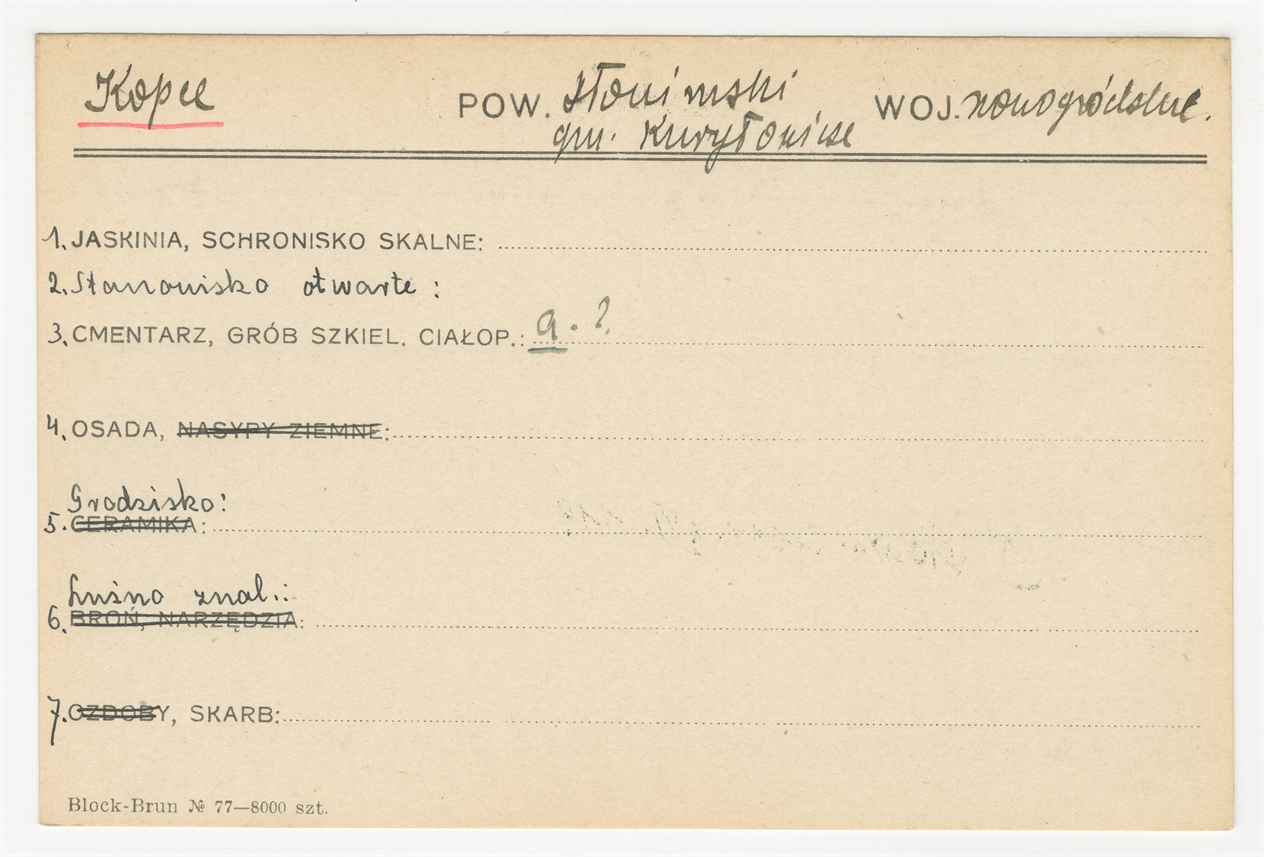 Kopce POW. słonimski WOJ. nowogródzkie.
gm. Kuryłowicze
1. JASKINIA, SCHRONISKO SKALNE:
2. Stanowisko otwarte :
3. CMENTARZ, GRÓB SZKIEL. CIAŁOP.: a. ?
4. OSADA, NASYPY ZIEMNE:
Grodzisko:
5. CERAMIKA:
Luźno znal.:
6. BROŃ, NARZĘDZIA:
7. OZDOBY, SKARB:
Block-Brun № 77—8000 szt.